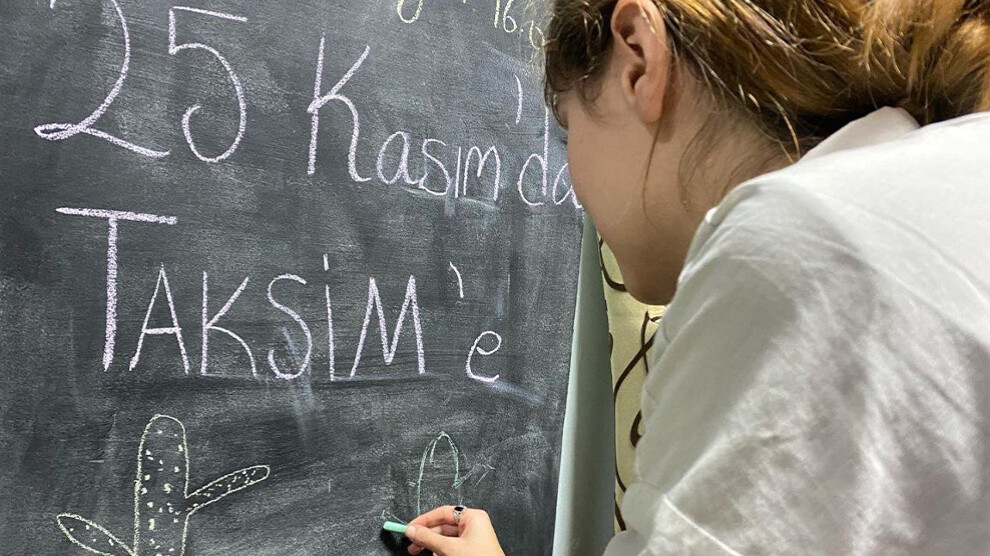 25 Kasım'da
TAKSİM'e